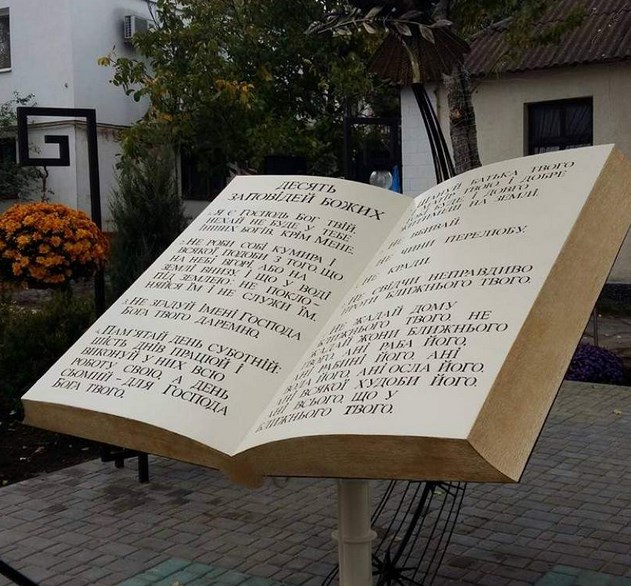 ДЕСЯТЬ
ЗАПОВІДЕЙ БОЖИХ
1. Я Є ГОСПОДЬ БОГ ТВІЙ,
НЕХАЙ НЕ БУДЕ У ТЕБЕ
ІНШИХ БОГІВ, КРІМ МЕНЕ.
2. НЕ РОБИ СОБІ КУМИРА І
ВСЯКОЇ ПОДОБИ З ТОГО, ЩО
НА НЕБІ ВГОРІ, АБО НА
ЗЕМЛІ ВНИЗУ, І ЩО У ВОДІ
ПІД ЗЕМЛЕЮ; НЕ ПОКЛО-
НЯЙСЯ ЇМ І НЕ СЛУЖИ ЇМ.
3. НЕ ЗГАДУЙ ІМЕНІ ГОСПОДА
БОГА ТВОГО ДАРЕМНО.
4. ПАМ'ЯТАЙ ДЕНЬ СУБОТНІЙ:
ШІСТЬ ДНІВ ПРАЦЮЙ І
ВИКОНУЙ У НИХ ВСЮ
РОБОТУ СВОЮ, А ДЕНЬ
СЬОМИЙ - ДЛЯ ГОСПОДА
БОГА ТВОГО.
БАТЬКА ТВОГО
ТВОЮ І ДОБРЕ
БУДЕ І ДОВГО
НА ЗЕМЛІ.
НЕ УБИВАЙ.
НЕ ЧИНИ ПЕРЕЛЮБУ.
НЕ КРАДИ.
НЕ СВІДЧИ НЕПРАВДИВО
ПРОТИ БЛИЖНЬОГО ТВОГО.
НЕ ЖАДАЙ ДОМУ
БЛИЖНЬОГО ТВОГО, НЕ
ЖАДАЙ ЖОНИ БЛИЖНЬОГО
ТВОГО, АНІ РАБА ЙОГО,
АНІ РАБИНІ ЙОГО, АНІ
ВОЛА ЙОГО, АНІ ОСЛА ЙОГО,
АНІ ВСЯКОЇ ХУДОБИ ЙОГО,
АНІ ВСЬОГО, ЩО У
БЛИЖНЬОГО ТВОГО.